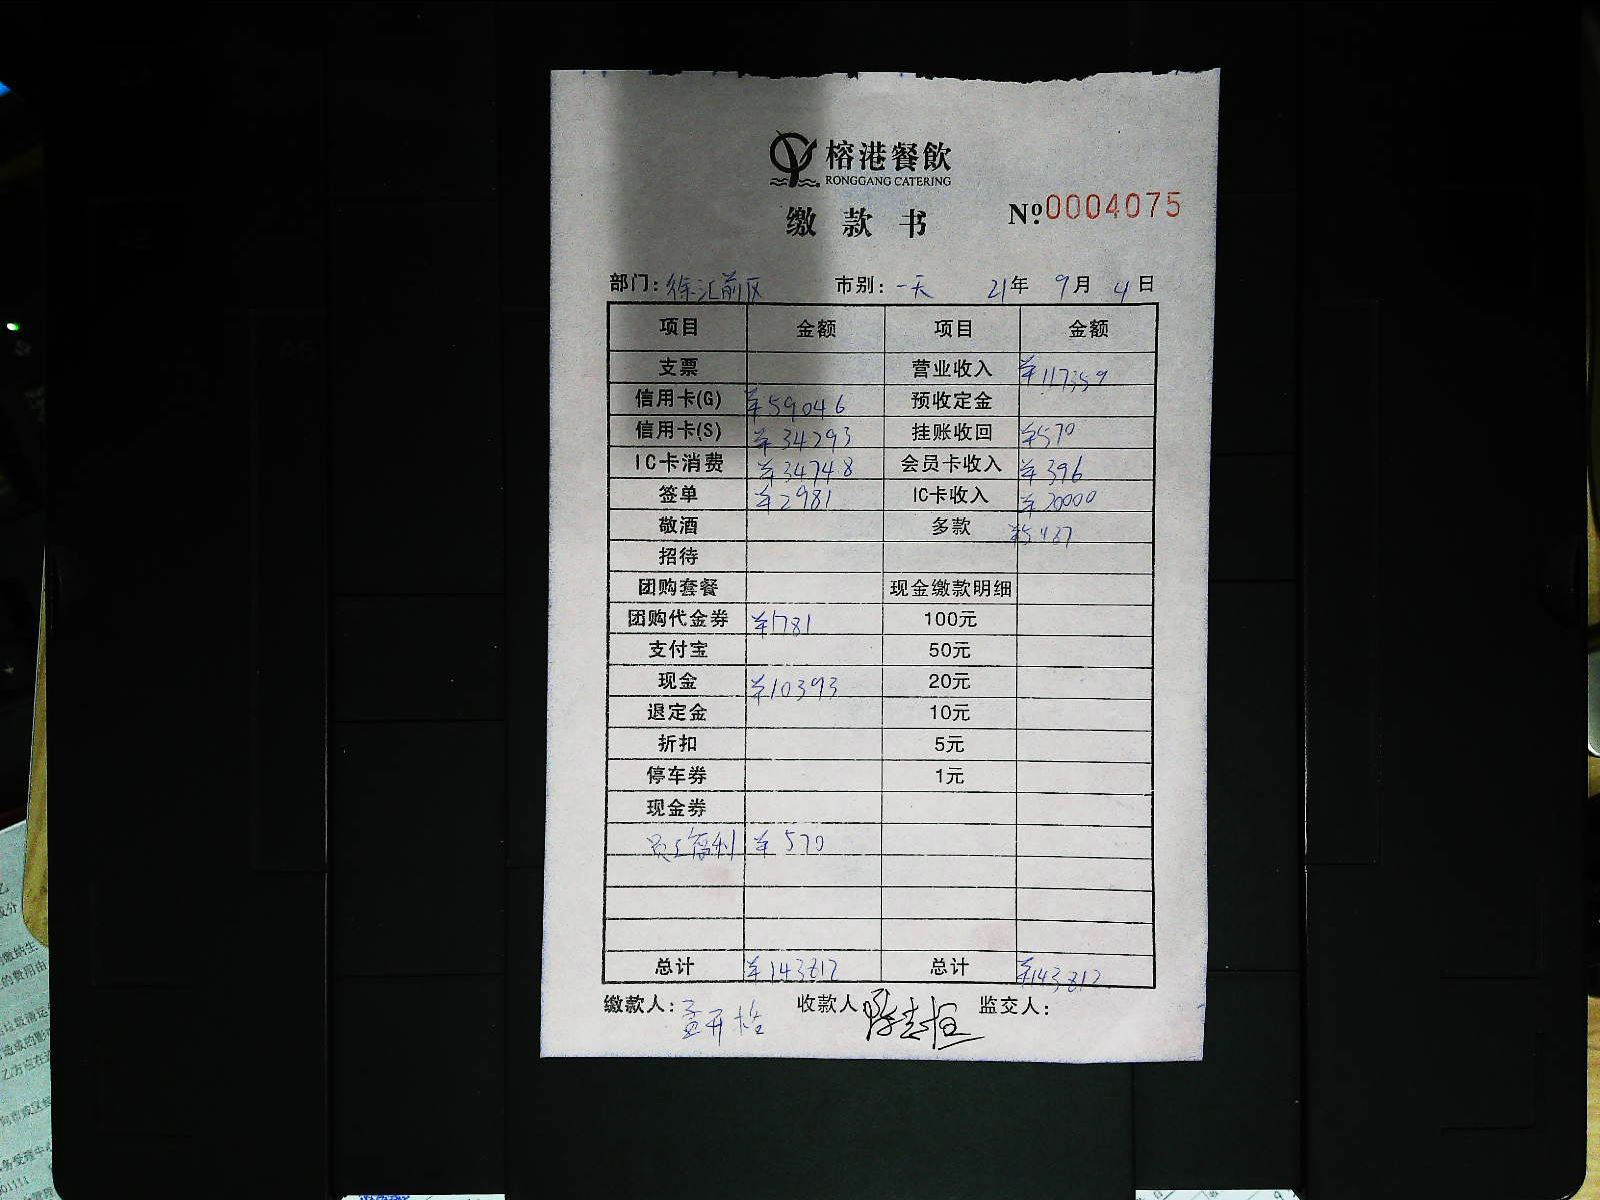 榕港餐飲
RONGGANG CATERING
缴款书
Nº 0004075
部门: 徐汇前区 市别: 一天 21年 9月 4日
项目 金额 项目 金额
支票 营业收入 ¥117359
信用卡(G) ¥59046 预收定金
信用卡(S) ¥34293 挂账收回 ¥570
IC卡消费 ¥34748 会员卡收入 ¥396
签单 ¥2981 IC卡收入 ¥20000
敬酒 多款 ¥5487
招待
团购套餐 现金缴款明细
团购代金券 ¥1781 100元
支付宝 50元
现金 ¥10393 20元
退定金 10元
折扣 5元
停车券 1元
现金券
¥570
总计 ¥143812 总计 ¥143812
缴款人: 收款人 监交人: